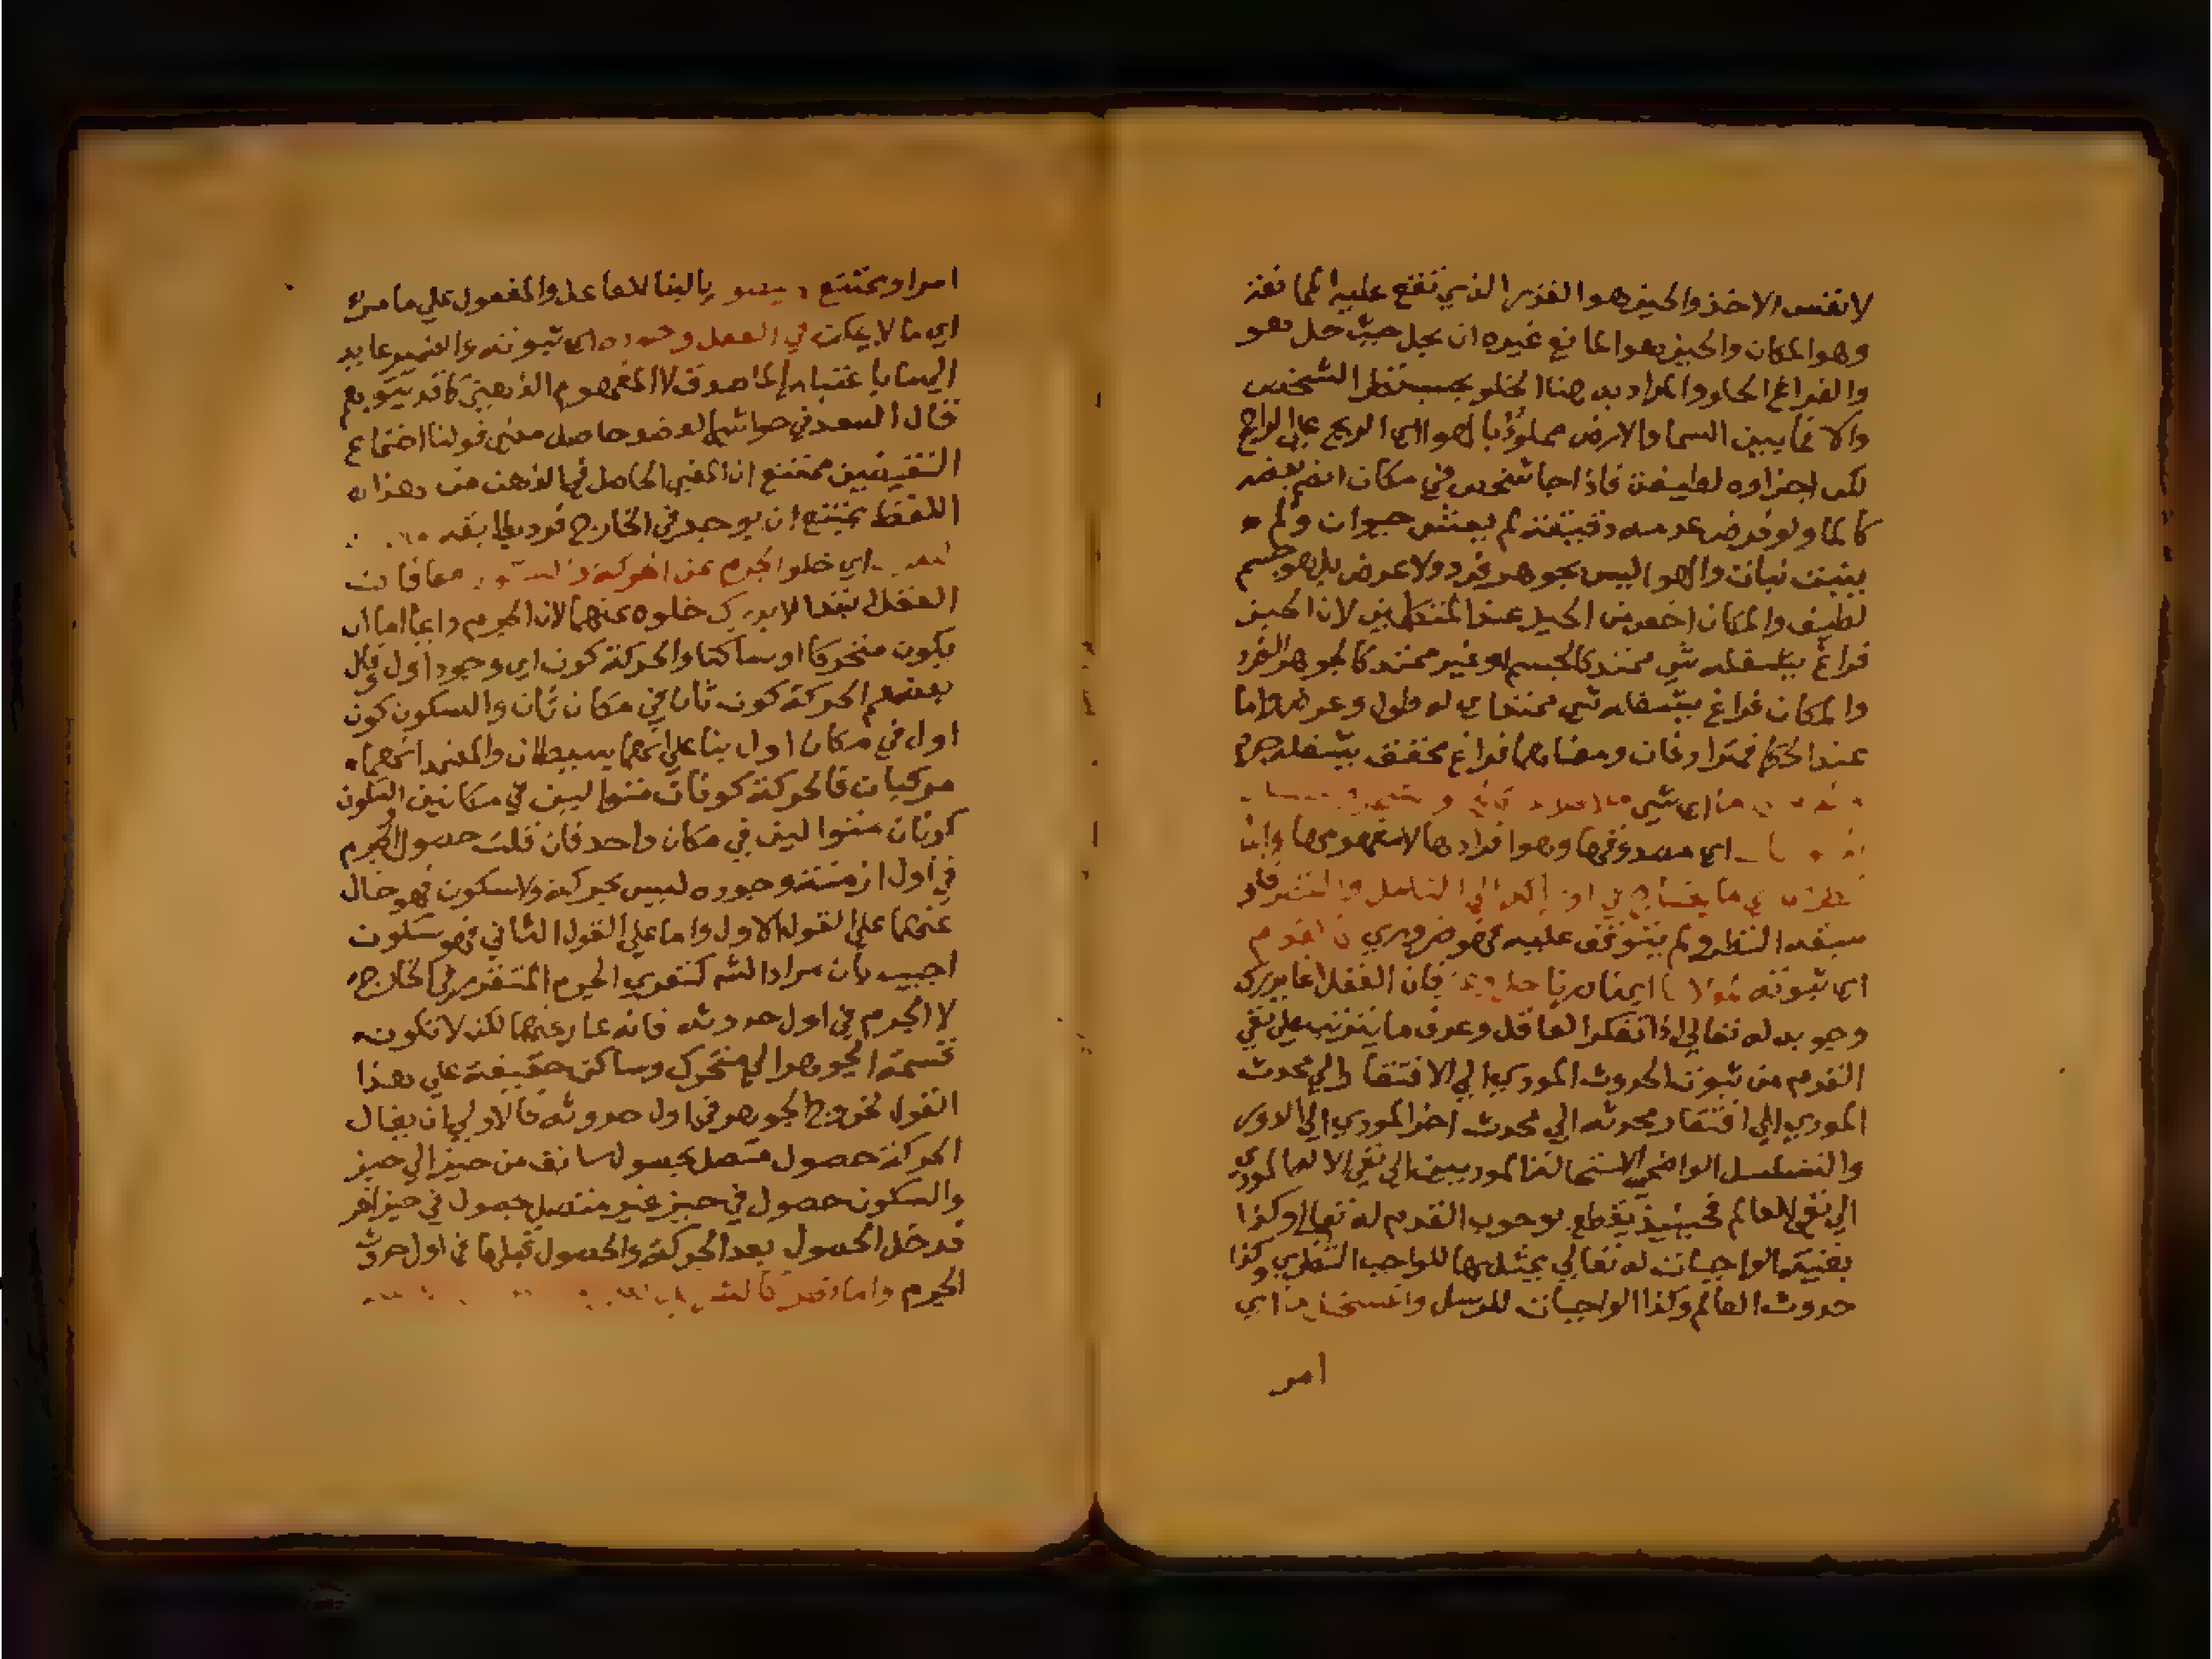 لا نفس الاخذ والحيز هو القدر الذي تقع عليه المما نعة
وهو المكان والحيز هو المانع غيره ان يحل حيث حل هو
والفراغ الخلو والمراد به هنا الخلو بحسب نظر الشخص
والا فما بين السما والارض مملؤ بالهوا اي الريح علي الراجح
لكن اجزاوه لطيفة فاذا جا شخص في مكان انضم بعضه
كالما ولو فرض عدمه دقيقة لم يعش حيوان ولم
ينبت نبات والهوا ليس بجوهر فرد ولا عرض بل هو جسم
لطيف والمكان اخص من الحيز عند المتكلمين لان الحيز
فراغ يشغله شي ممتد كالجسم او غير ممتد كالجوهر الفرد
والمكان فراغ يشغله شي ممتد اي له طول وعرض واما
عند الحكما فمترادفان ومعناهما فراغ محقق يشغله جرم
اي شي
اي مصدوقها وهو افرادها لا مفهومها
اي ما يحتاج في ادراكه الي التامل
سبقه النظر ولم يتوقف عليه فهو ضروري كالقدم
اي ثبوته لمولانا اي ناصرنا جل وعز فان العقل انما يدرك
وجوبه له تعالي اذا تفكر العاقل وعرف ما يترتب علي نفي
القدم من ثبوت الحدوث المودي الي الافتقار الي محدث
المودي الي افتقار محدثه الي محدث اخر المودي الي الدور
والتسلسل الواضحي الاستحالة الموديين الي نفي الاله المودي
الي نفي العالم فحينيذ يقطع بوجوب القدم له تعالي وكذا
بقية الواجبات له تعالي يمثل بها للواجب النظري وكذا
حدوث العالم وكذا الواجبات للرسل والمستحيل ما اي
امر
امر او يمتنع بالبنا للفاعل والمفعول علي ما مر
اي ما لا يمكن في العقل وجوده اي ثبوته والضمير عايد
الي ما باعتبار الماصدق لا المفهوم الذهني كما قد يتوهم
قال السعد في حواشي العضد حاصل معني قولنا اجتماع
النقيضين ممتنع ان المعني الحاصل في الذهن من هذا
اللفظ يمتنع ان يوجد في الخارج فرد يطابقه
اي خلو الجرم عن الحركة والسكون معا فان
العقل ابتدا لا يدرك خلوه عنهما لان الجرم دايما اما ان
يكون متحركا او ساكنا والحركة كون اي وجود اول وقال
بعضهم الحركة كون ثان في مكان ثان والسكون كون
اول في مكان اول بنا علي انهما بسيطان والمعتمد انهما
مركبان فالحركة كونان متواليين في مكانين والسكون
كونان متواليين في مكان واحد فان قلت حصول الجرم
في اول ازمنة وجوده ليس بحركة ولا سكون فهو خال
عنهما علي القول الاول واما علي القول الثاني فهو سكون
اجيب بان مراد الش كغيره الجرم المتقرر في الخارج
لا الجرم في اول حدوثه فانه عار عنهما لكن لا تكون
قسمة الجوهر الي متحرك وساكن حقيقة علي هذا
القول لخروج الجوهر في اول حدوثه فالاولي ان يقال
الحركة حصول متصل بحصول سابق من حيز الي حيز
والسكون حصول في حيز غير متصل بحصول في حيز اخر
فدخل الحصول بعد الحركة والحصول قبلها في اول حدوث
الجرم واما